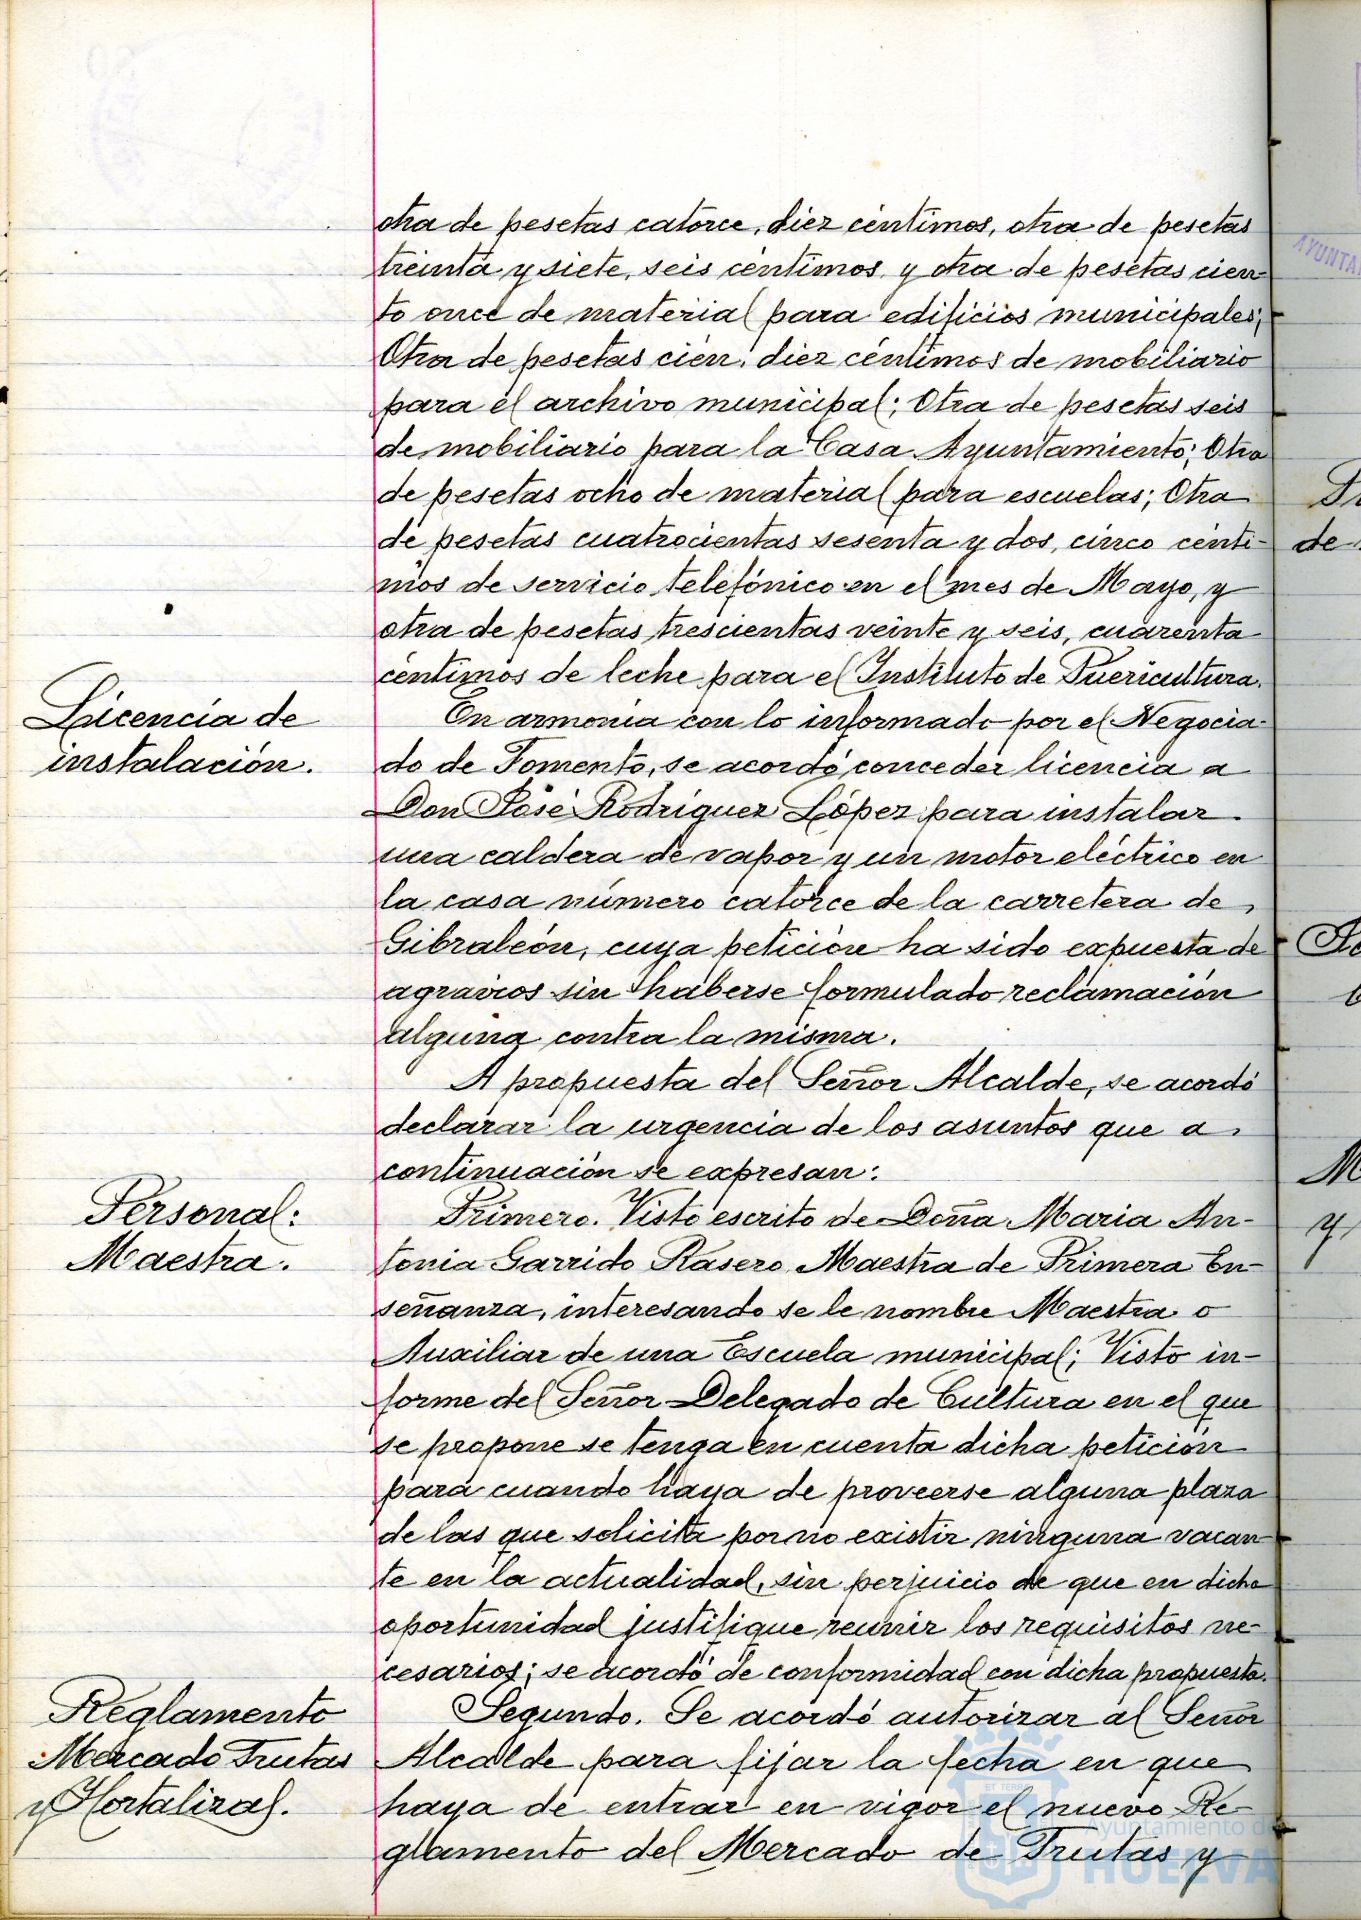 otra de pesetas catorce, diez céntimos, otra de pesetas
treinta y siete, seis céntimos y otra de pesetas cien-
to once de material para edificios municipales;
Otra de pesetas cien, diez céntimos de mobiliario
para el archivo municipal; Otra de pesetas seis
de mobiliario para la Casa Ayuntamiento; Otra
de pesetas ocho de material para escuelas; Otra
de pesetas cuatrocientas sesenta y dos, cinco cénti-
mos de servicio telefónico en el mes de Mayo, y
otra de pesetas trescientas veinte y seis, cuarenta
céntimos de leche para el Instituto de Puericultura.
Licencia de
instalación.
En armonia con lo informado por el Negocia-
do de Fomento, se acordó conceder licencia a
Don José Rodríguez López para instalar
una caldera de vapor y un motor eléctrico en
la casa número catorce de la carretera de
Gibraleón, cuya petición ha sido expuesta de
agravios sin haberse formulado reclamación
alguna contra la misma.
A propuesta del Señor Alcalde, se acordó
declarar la urgencia de los asuntos que a
continuación se expresan:
Personal:
Maestra.
Primero. Visto escrito de Doña Maria An-
tonia Garrido Rasero Maestra de Primera En-
señanza, interesando se le nombre Maestra o
Auxiliar de una Escuela municipal; Visto in-
forme del Señor Delegado de Cultura en el que
se propone se tenga en cuenta dicha petición
para cuando haya de proveerse alguna plaza
de las que solicita por no existir ninguna vacan-
te en la actualidad, sin perjuicio de que en dicha
oportunidad justifique reunir los requisitos ne-
cesarios; se acordó de conformidad con dicha propuesta.
Reglamento
Mercado Frutas
y Hortalizas.
Segundo. Se acordó autorizar al Señor
Alcalde para fijar la fecha en que
haya de entrar en vigor el nuevo Re-
glamento del Mercado de Frutas y
Ayuntamiento de
HUELVA